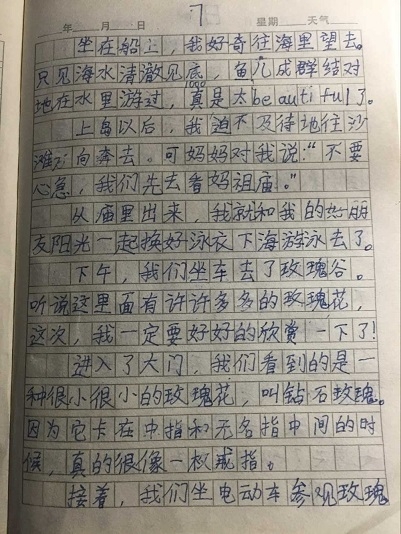 7
年 月 日 星期 天气
坐在船上，我好奇往海里望去。
只见海水清澈见底，鱼儿成群结对
地在水里游过，真是太beautiful了。
上岛以后，我迫不及待地往沙
滩方向奔去。可妈妈对我说：“不要
心急，我们先去看妈祖庙。”
从庙里出来，我就和我的好朋
友阳光一起换好泳衣下海游泳去了。
下午，我们坐车去了玫瑰谷。
听说这里面有许许多多的玫瑰花，
这次，我一定要好好的欣赏一下了！
进入了大门，我们看到的是一
种很小很小的玫瑰花，叫钻石玫瑰。
因为它卡在中指和无名指中间的时
候，真的很像一枚戒指。
接着，我们坐电动车参观玫瑰